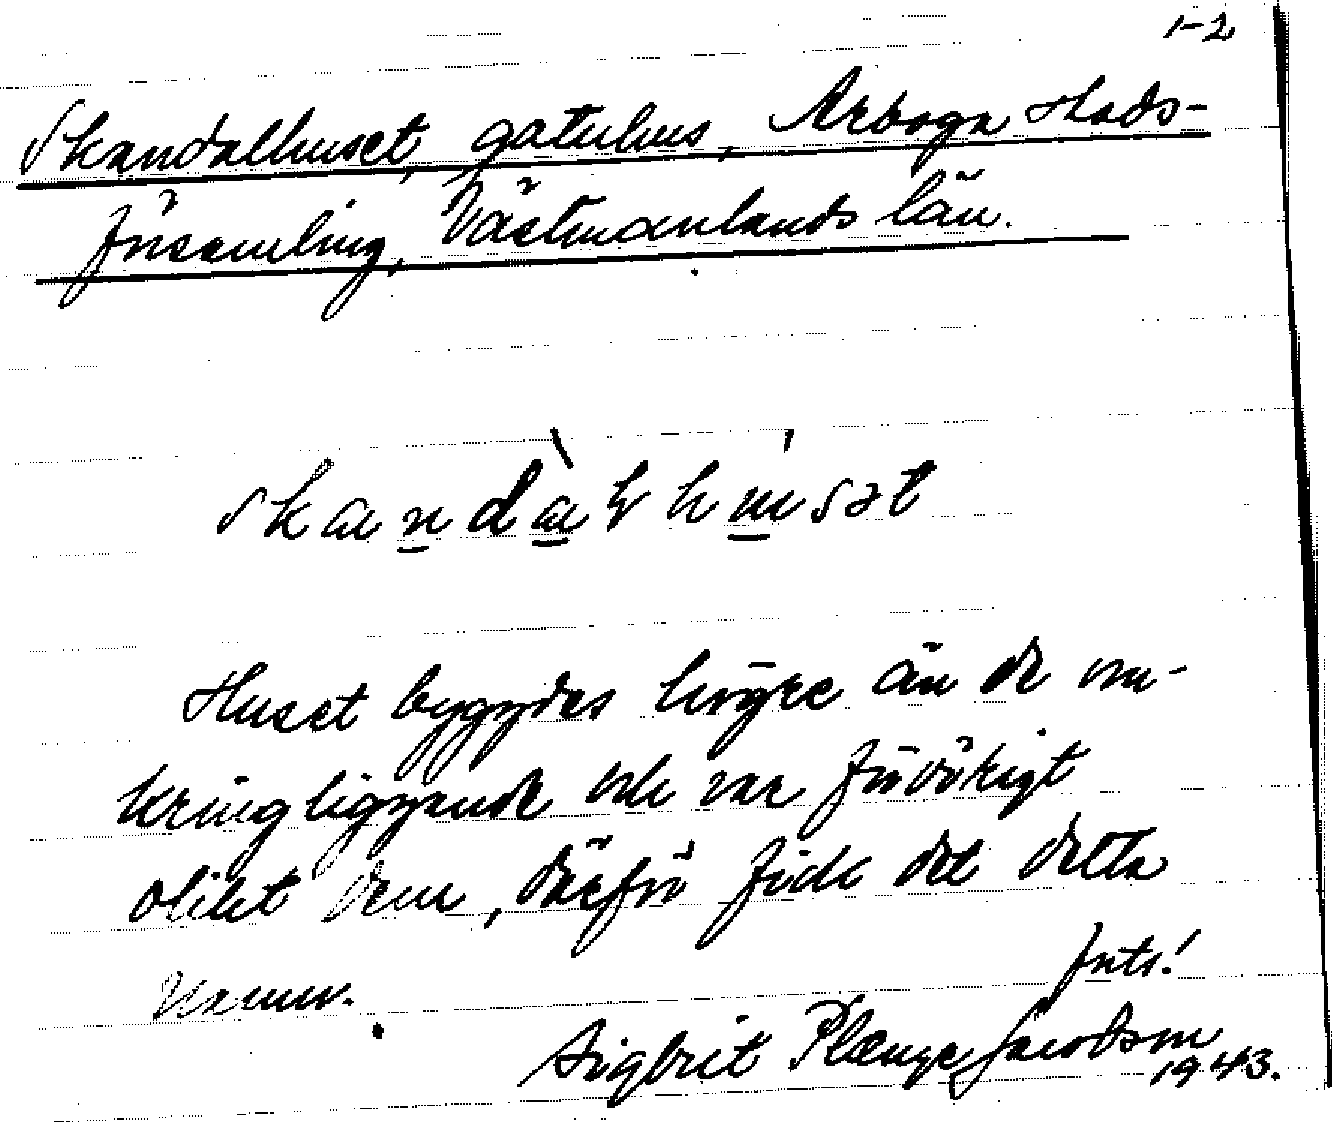 1-2
Skandalhuset, gatuhus, Arboga stads-
församling, Västmanlands län.
Huset byggdes högre än de om-
kringliggande och var förövrigt
olikt dem, därför fick det detta
namn.
forts!
Sigbrit Plænge Jacobson
1943.